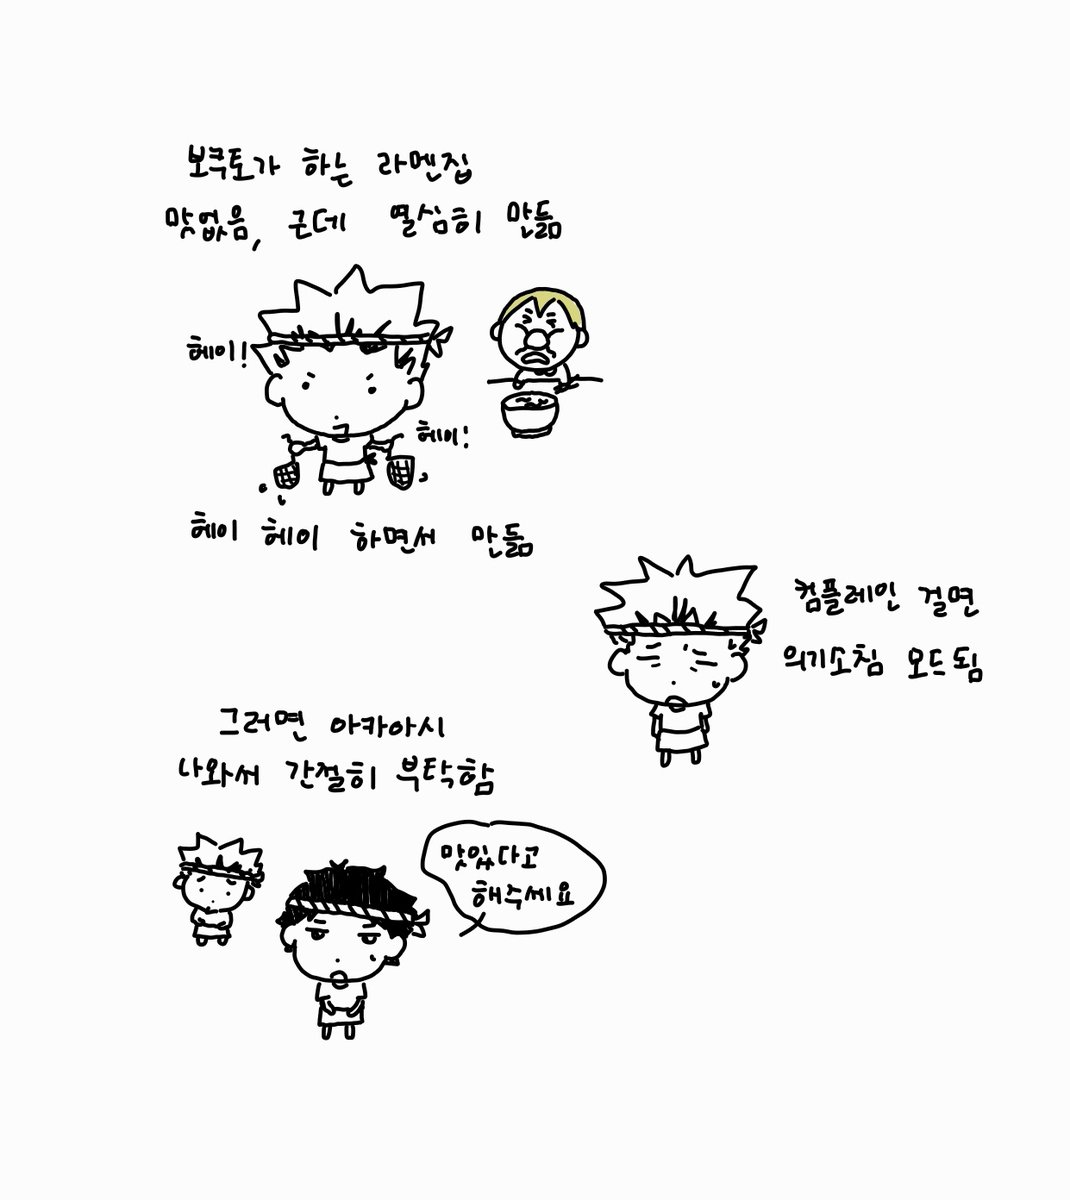 보쿠토가 하는 라멘집
맛없음, 근데 열심히 만듦
헤이!
헤이!
헤이 헤이 하면서 만듦
컴플레인 걸면
의기소침 모드됨
그러면 아카아시
나와서 간절히 부탁함
맛있다고
해주세요